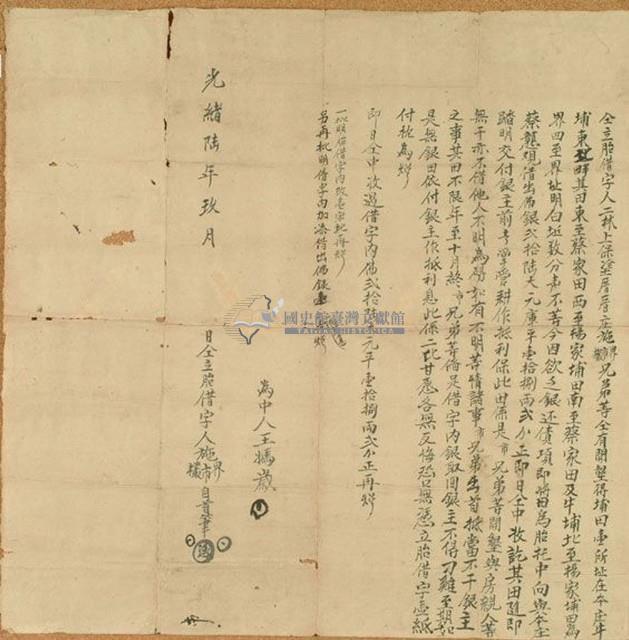 仝立胎借字人二林上保塗厝厝庄施界市兄弟等仝有開墾得埔田壹所址在本庄牛
埔東勢畔其田東至蔡家田西至楊家埔田南至蔡家田及牛埔北至楊家埔田為
界四至界址明白坵数分声不等今因欲乏銀还債項即將田為胎托中向與本庄
蔡 覌借出佛銀弍拾陸大元庫平壹拾捌兩弍分正即日仝中收訖其田隨即
踏明交付銀主前去掌管耕作抵利保此田係是市兄弟等開墾與房親人等
無干亦不借他人不明為碍如有不明等情諸事市兄弟出首抵當不干銀主
之事其田不限年至十月終市兄弟等偹足借字內銀取回銀主不得刁難至期如
是無銀田依付銀主作抵利息此係二比甘愿各無反悔恐口無憑立胎借字壹紙
付执為炤
即日仝中收過借字內佛弍拾陸大元平壹拾捌兩弍分正再炤
一批明胎借字內改壹字乩再炤
另再批明借字內加添借出佛銀壹 炤
為中人王媽歲
光緒陸年玖月 日仝立胎借字人施界市 自書筆
國史館臺灣文獻館
TAIWAN HISTORICA